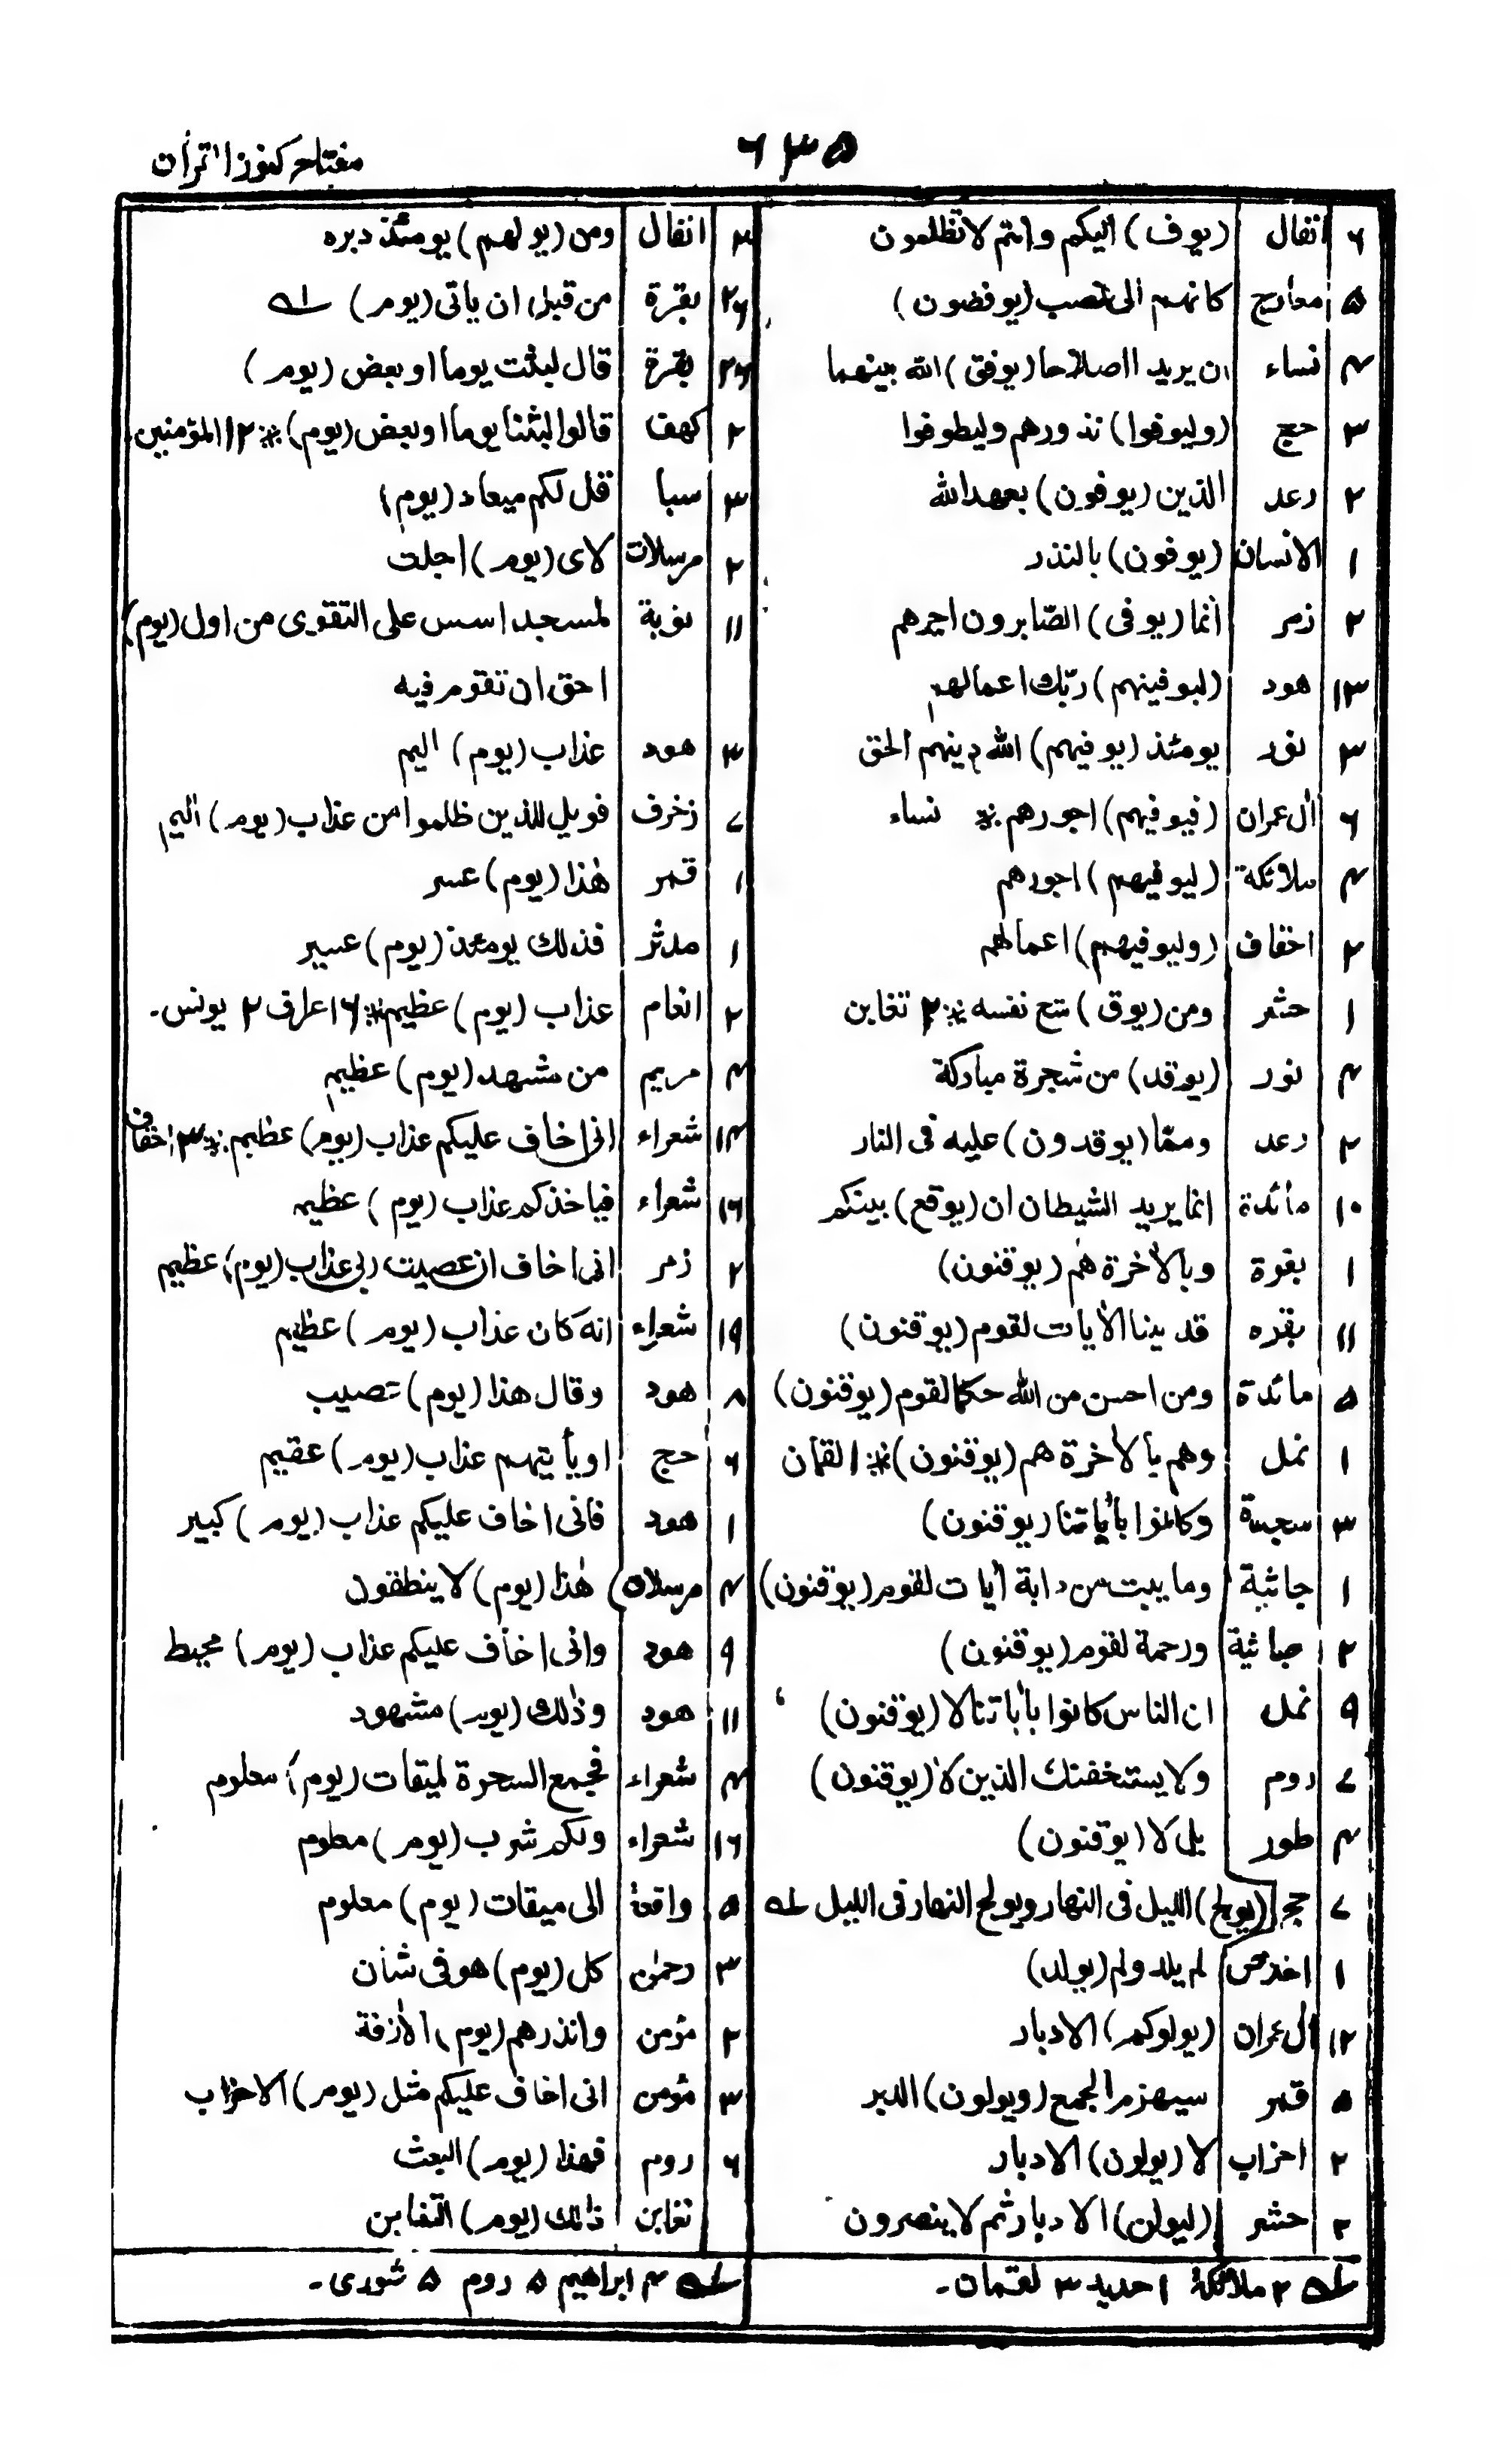 مفتاح کنوز القرأن
۶۳۵
۶ انفال (یوف) الیکم وانتم لا تظلمون
۵ معارج کانهم الی نصب (یوفضون)
۴ نساء ان یریدا اصلاحا (یوفق) الله بینهما
۳ حج (ولیوفوا) نذورهم ولیطوفوا
۲ رعد الذین (یوفون) بعهد الله
۱ الانسان (یوفون) بالنذر
۲ زمر انما (یوفی) الصّابرون اجرهم
۱۳ هود (لیوفینهم) ربّك اعمالهم
۳ نور یومئذ (یوفیهم) الله دینهم الحق
۶ اٰل عمران (فیوفیهم) اجورهم ※ نساء
۴ ملائکة (لیوفیهم) اجورهم
۲ احقاف (ولیوفیهم) اعمالهم
۱ حشر ومن (یوق) شح نفسه ※ ۲ تغابن
۴ نور (یوقد) من شجرة مبارکة
۲ رعد ومما (یوقدون) علیه فی النار
۱۰ مائدة انما یرید الشیطان ان (یوقع) بینکم
۱ بقرة وبالاٰخرة هم (یوقنون)
۱۱ بقره قد بینا الاٰیات لقوم (یوقنون)
۵ مائدة ومن احسن من الله حکما لقوم (یوقنون)
۱ نمل وهم بالاٰخرة هم (یوقنون) ※ ۱ لقمٰن
۳ سجدة وکانوا باٰیاتنا (یوقنون)
۱ جاثیة وما یبث من دابة اٰیات لقوم (یوقنون)
۲ جاثیة ورحمة لقوم (یوقنون)
۹ نمل ان الناس کانوا باٰیاتنا لا (یوقنون)
۷ روم ولا یستخفنك الذین لا (یوقنون)
۴ طور بل لا (یوقنون)
۷ حج (یولج) اللیل فی النهار ویولج النهار فی اللیل ـه
۱ اخلاص لم یلد ولم (یولد)
۱۲ اٰل عمران (یولوکم) الادبار
۵ قمر سیهزم الجمع (ویولون) الدبر
۲ احزاب لا (یولون) الادبار
۲ حشر (لیولن) الادبار ثم لا ینصرون
ـه ۲ ملائکة ۱ حدید ۳ لقمان۔
۲ انفال ومن (یولهم) یومئذ دبره
۲۶ بقرة من قبل ان یاتی (یوم) ـه
بقرة قال لبثت یوما او بعض (یوم)
۲ کهف قالوا لبثنا یوما او بعض (یوم) ※ ۱۲ المؤمنین
۳ سبا قل لکم میعاد (یوم)
۲ مرسلات لای (یوم) اجلت
۱۱ توبة لمسجد اسس علی التقوی من اول (یوم)
احق ان تقوم فیه
۳ هود عذاب (یوم) الیم
۷ زخرف فویل للذین ظلموا من عذاب (یوم) الیم
۱ قمر هٰذا (یوم) عسر
۱ مدثر فذلك یومئذ (یوم) عسیر
۲ انعام عذاب (یوم) عظیم ※ ۶ اعراف ۲ یونس۔
۴ مریم من مشهد (یوم) عظیم
۱۴ شعراء انی اخاف علیکم عذاب (یوم) عظیم ※ ۳ احقاف
۱۶ شعراء فیاخذکم عذاب (یوم) عظیم
۲ زمر انی اخاف ان عصیت ربی عذاب (یوم) عظیم
۱۹ شعراء انه کان عذاب (یوم) عظیم
۸ هود وقال هذا (یوم) عصیب
۶ حج او یأتیهم عذاب (یوم) عقیم
۱ هود فانی اخاف علیکم عذاب (یوم) کبیر
۴ مرسلات هٰذا (یوم) لا ینطقون
۹ هود وانی اخاف علیکم عذاب (یوم) محیط
۱۱ هود وذٰلك (یوم) مشهود
۴ شعراء فجمع السحرة لمیقات (یوم) معلوم
۱۶ شعراء ولکم شرب (یوم) معلوم
۵ واقعة الی میقات (یوم) معلوم
۳ رحمٰن کل (یوم) هو فی شأن
۲ مؤمن وانذرهم (یوم) الاٰزفة
۳ مؤمن انی اخاف علیکم مثل (یوم) الاحزاب
۶ روم فهذا (یوم) البعث
تغابن ذٰلك (یوم) التغابن
ـه ۴ ابراهیم ۵ روم ۵ شوری۔